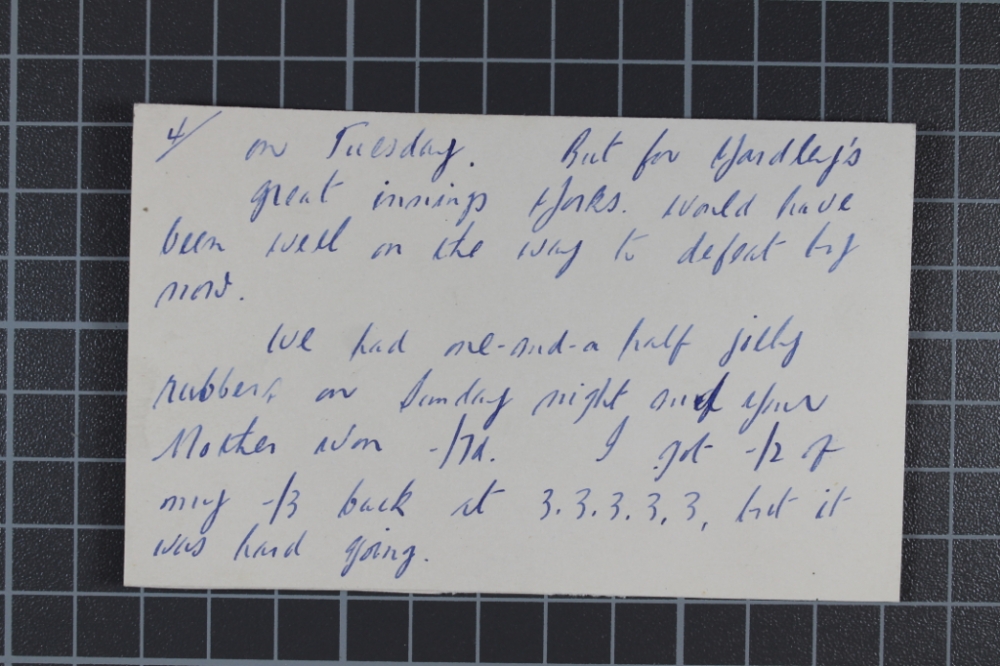 4/ on Tuesday. But for Yardley's
great innings Yorks. would have
been well on the way to defeat by
now.
We had one-and-a half jolly
rubbers, on Sunday night and your
Mother won -/7d. I got -/2 of
my -/3 back at 3.3.3.3.3, but it
was hard going.